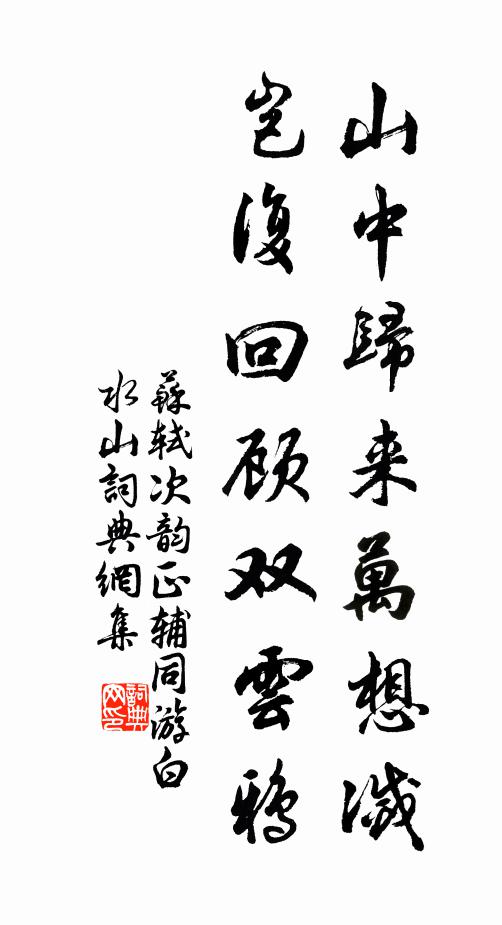 山中歸来萬想滅
岂復回顾双雲鴉
蘇軾次韵正辅同游白
水山詞典網集
詞典网印